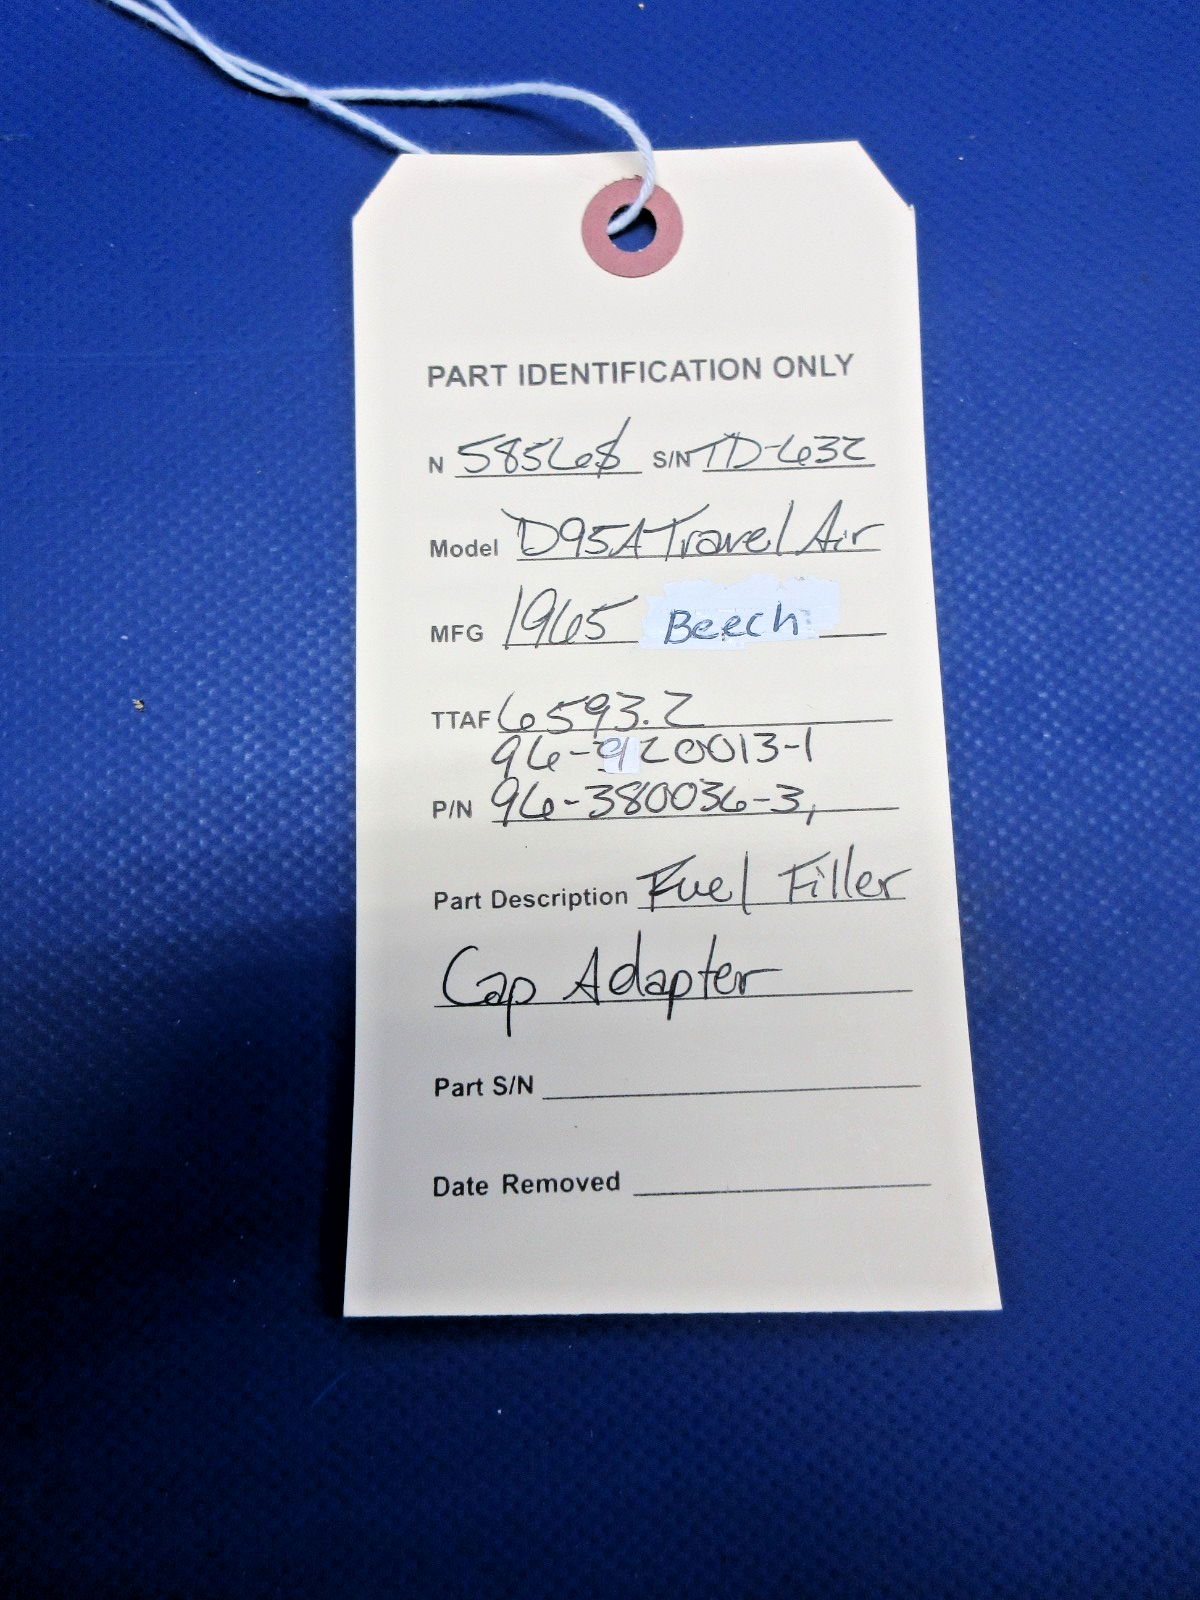 PART IDENTIFICATION ONLY
N 58568 S/N TD-632
Model D95A Travel Air
MFG 1965 Beech
TTAF 6593.2
96-920013-1
P/N 96-380036-3,
Part Description Fuel Filler
Cap Adapter
Part S/N
Date Removed